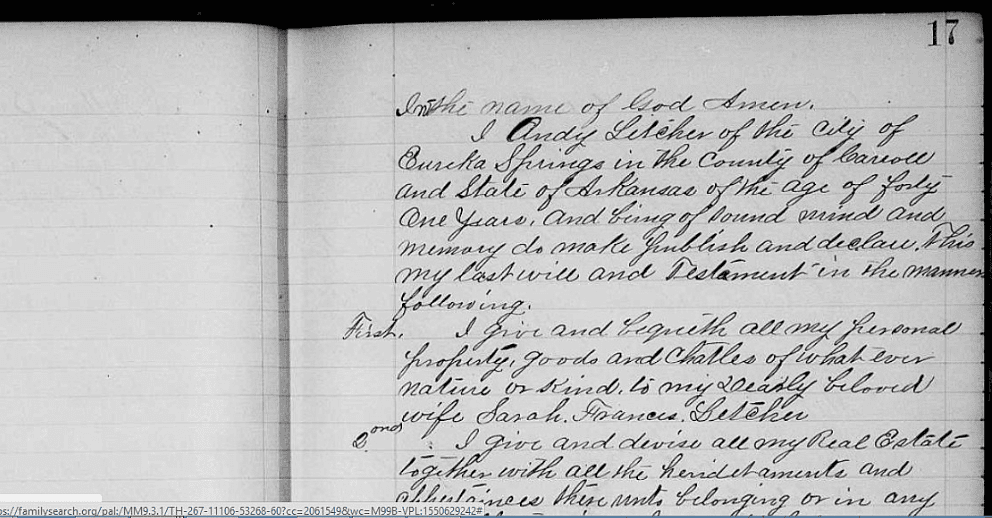 17
In the name of God Amen.
I Andy Letcher of the City of
Eureka Springs in the County of Carroll
and State of Arkansas of the age of forty
One Years. And being of sound mind and
memory do make publish and declare. This
my last will and Testament in the manner
following.
First. I give and bequeth all my personal
property, goods and Chatles of what ever
nature or Kind. to my Dearly beloved
wife Sarah. Frances. Letcher
2ond : I give and devise all my Real Estate
together with all the heridetaments and
there unto belonging or in any
ps://familysearch.org/pal:/MM9.3.1/TH-267-11106-53268-60?cc=2061549&wc=M99B-VPL:1550629242#